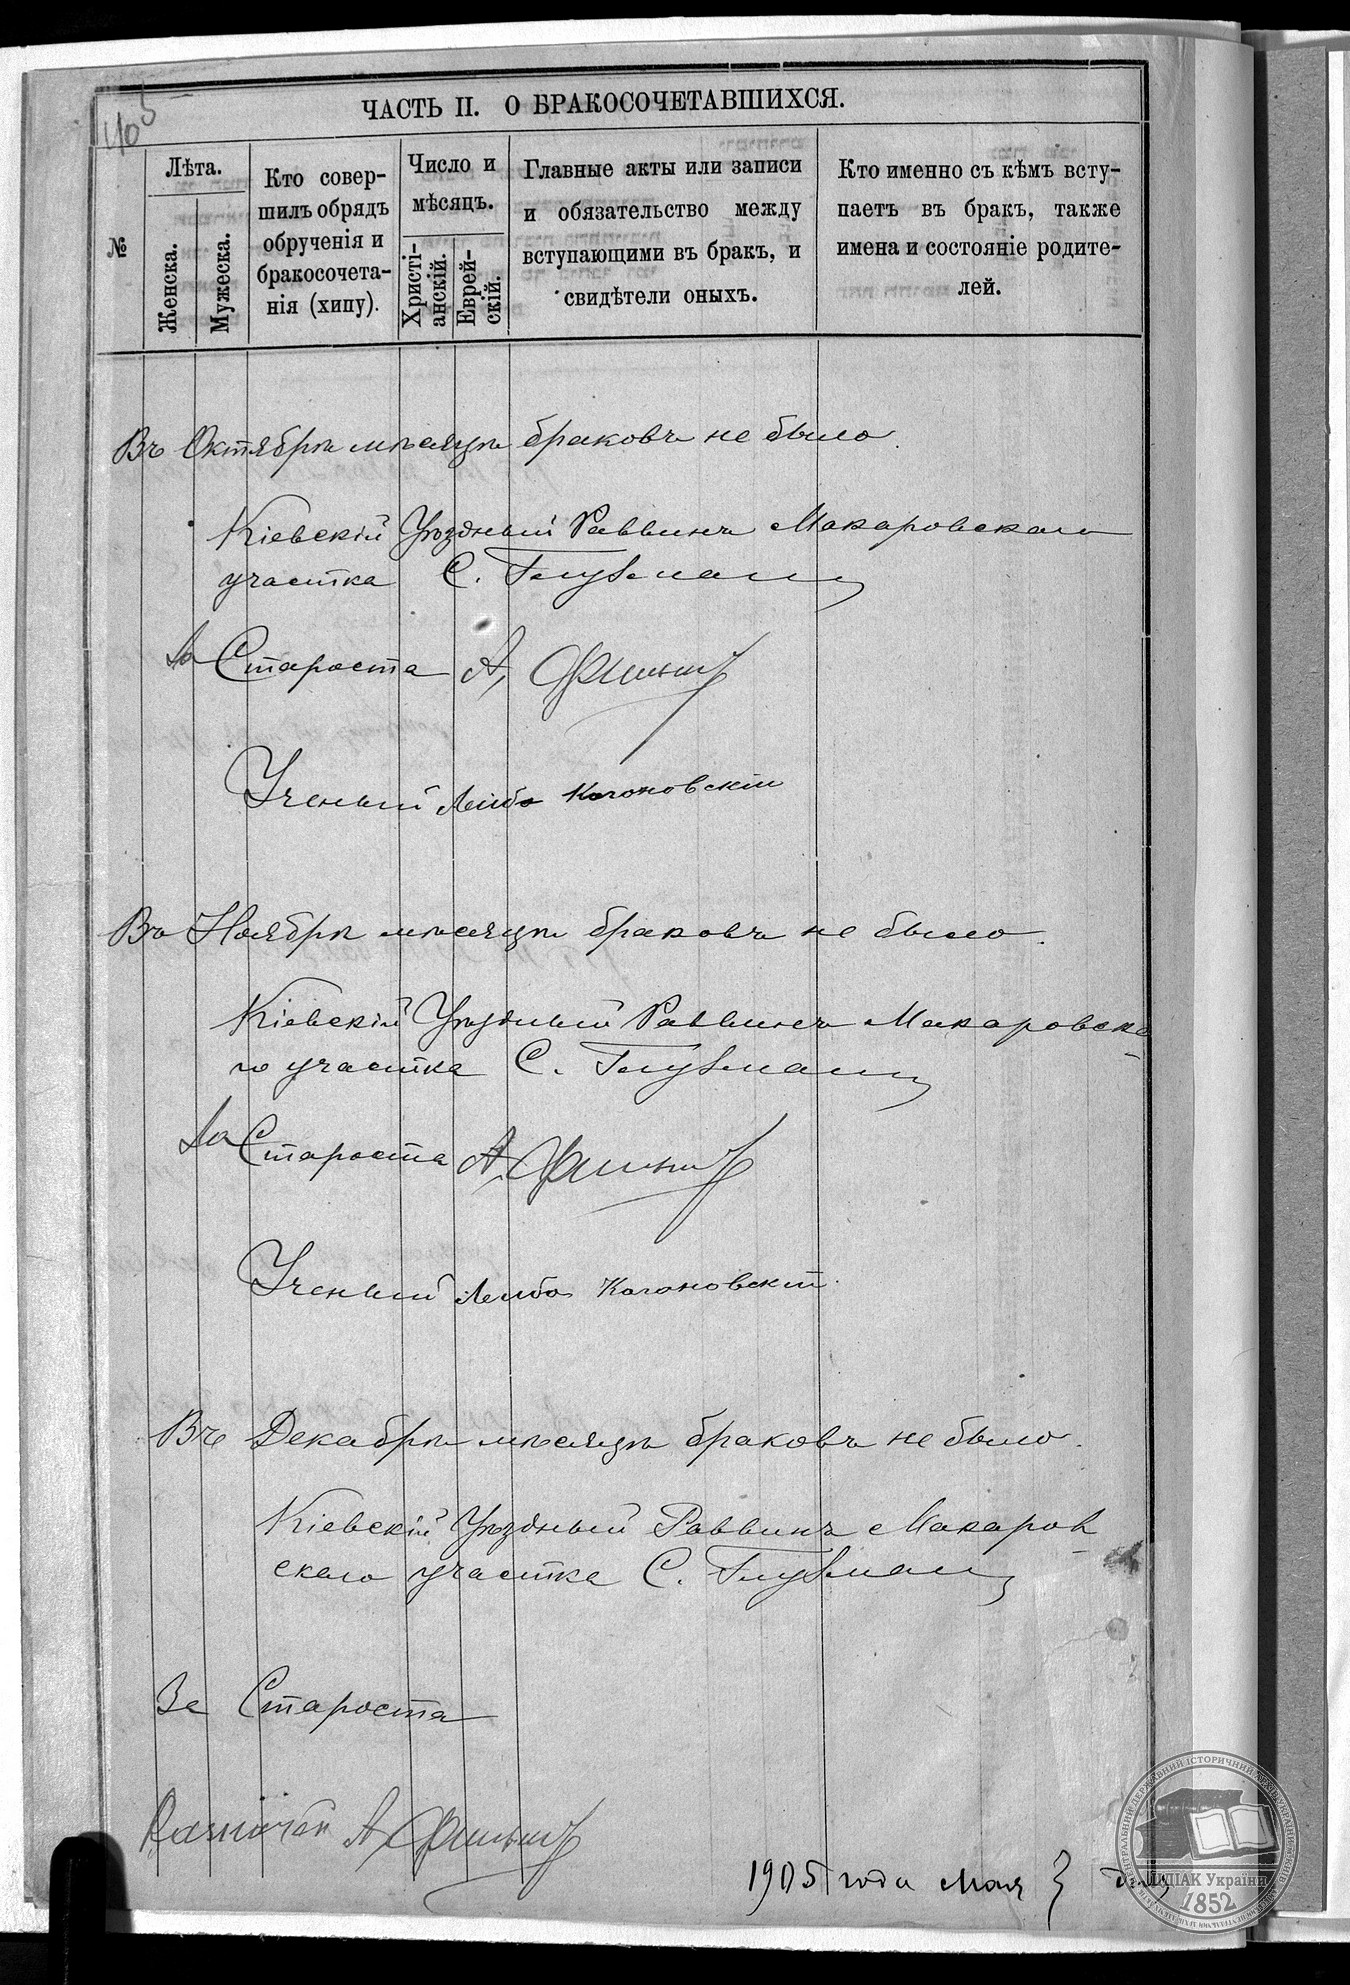 ЧАСТЬ II. О БРАКОСОЧЕТАВШИХСЯ.
№
Лѣта.
Женска.
Мужеска.
Кто совер-
шилъ обрядъ
обрученія и
бракосочета-
нія (хипу).
Число и
мѣсяцъ.
Христі-
анскій.
Еврей-
скій.
Главные акты или записи
и обязательство между
вступающими въ бракъ, и
свидѣтели оныхъ.
Кто именно съ кѣмъ всту-
паетъ въ бракъ, также
имена и состояніе родите-
лей.
Въ Октябрѣ мѣсяцѣ браковъ не было.
Кіевскій Уѣздный Раввинъ Макаровскаго
участка С. Глузманъ
За Староста А.
Ученый Лейба Когоновскій
Въ Ноябрѣ мѣсяцѣ браковъ не было.
Кіевскій Уѣздный Раввинъ Макаровска
го участка С. Глузманъ
За Староста А.
Ученый Лейба Когановскій.
Въ Декабрѣ мѣсяцѣ браковъ не было.
Кіевскій Уѣздный Раввинъ Макаров
скаго участка С. Глузманъ
За Староста
Казначей А.
1905 года Мая 3 дня
ЦДІАК України
1852